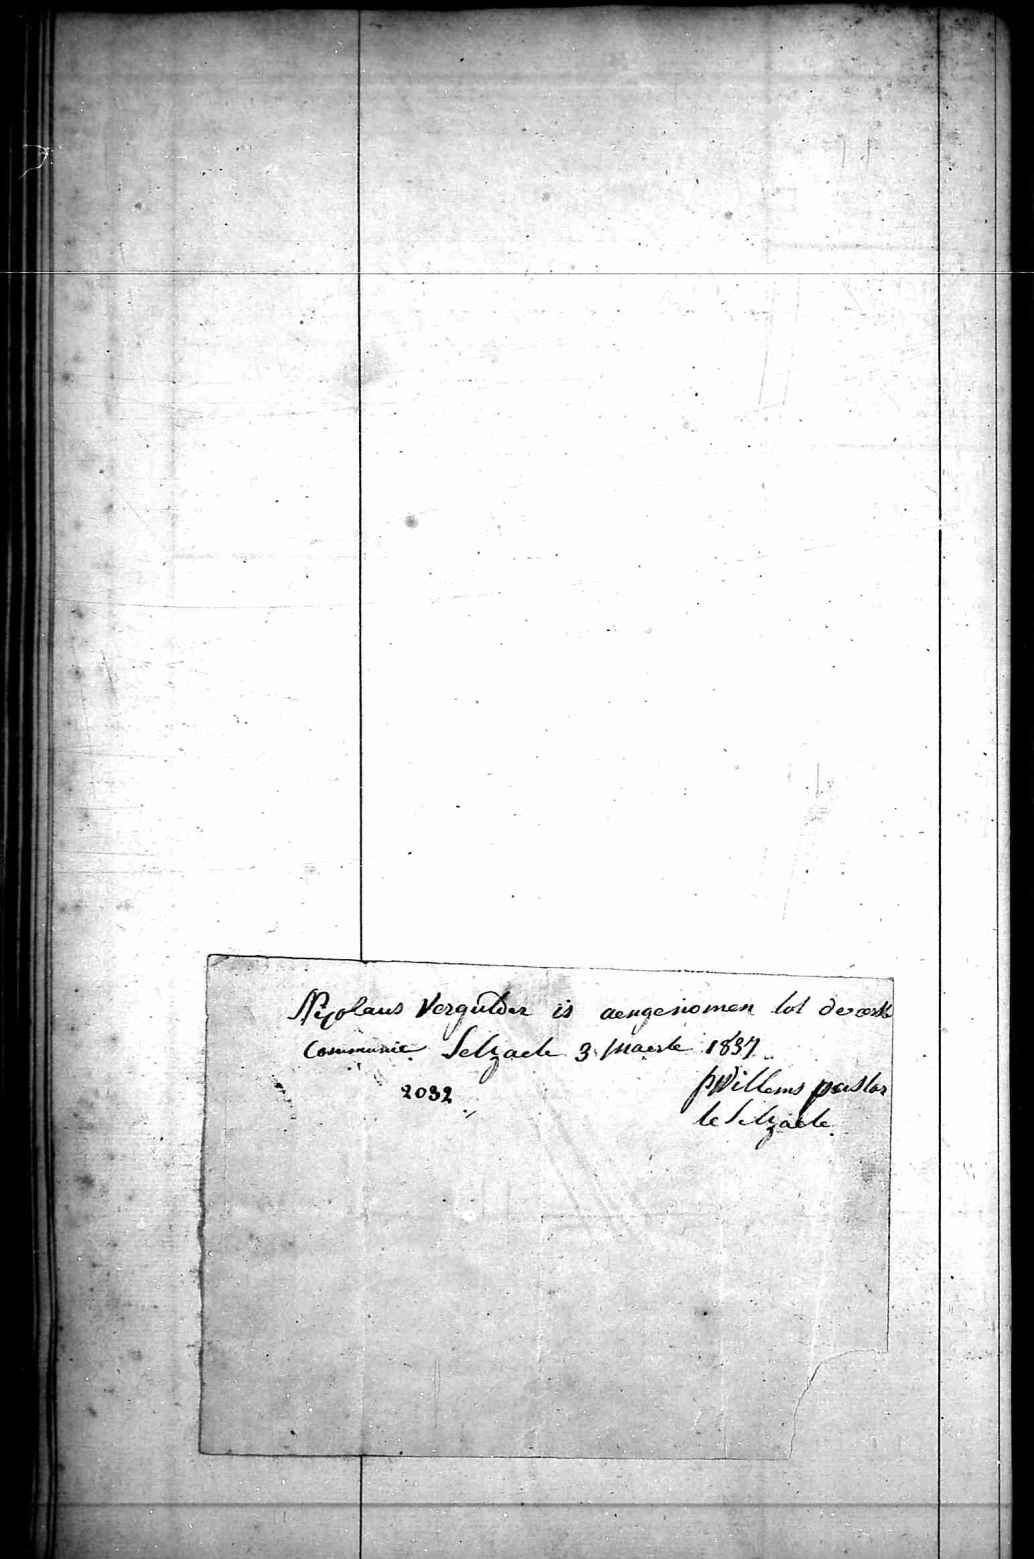 Nicolaus Vergulder is aengenomen tot de eerste
Communie Selzaete 3 maerte 1837
2032
p Willems pastor
te Selzaete.